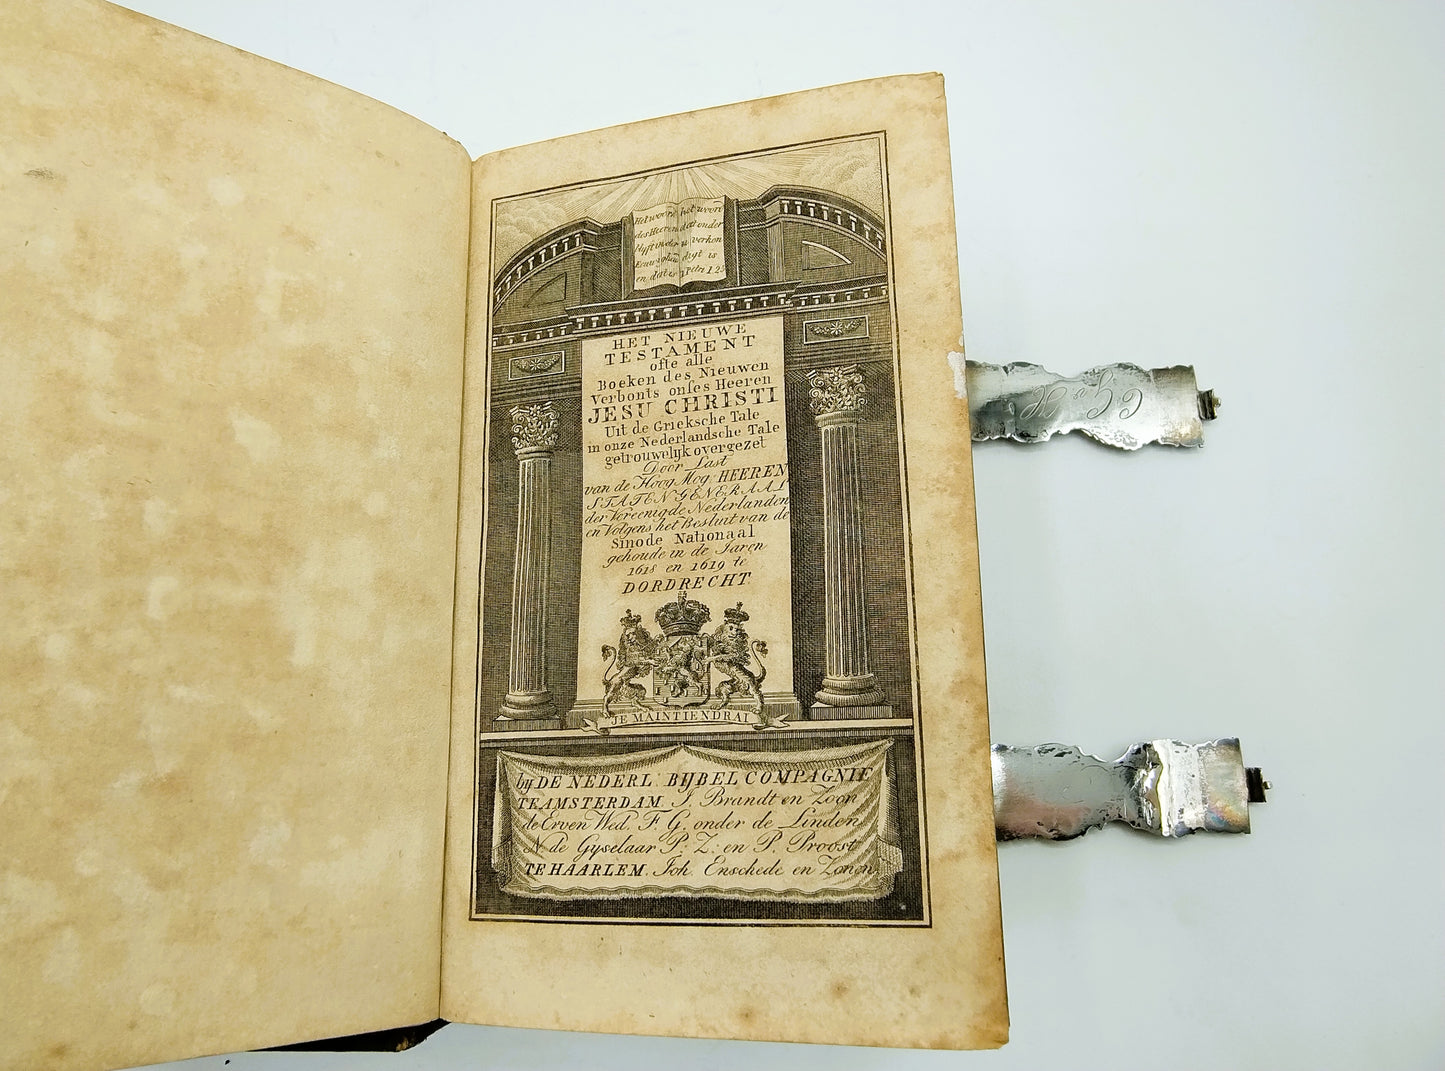 Het woord
des Heeren
blyft in der
Eeuwigheid
en dit is
het woord
dat onder
u verkon
digt is
1 Petri 1.25
HET NIEUWE
TESTAMENT
ofte alle
Boeken des Nieuwen
Verbonts onses Heeren
JESU CHRISTI
Uit de Grieksche Tale
in onze Nederlandsche Tale
getrouwelyk overgezet
Door Last
van de Hoog Mog. HEEREN
STATEN GENERAAL
der Vereenigde Nederlanden
en Volgens het Besluit van de
Sinode Nationaal
gehoude in de Jaren
1618 en 1619 te
DORDRECHT
JE MAINTIENDRAI
by DE NEDERL. BYBEL COMPAGNIE
TE AMSTERDAM J. Brandt en Zoon
de Erven Wed. F. G. onder de Linden
N. de Gyselaar P. Z. en P. Proost
TE HAARLEM. Joh. Enschede en Zonen